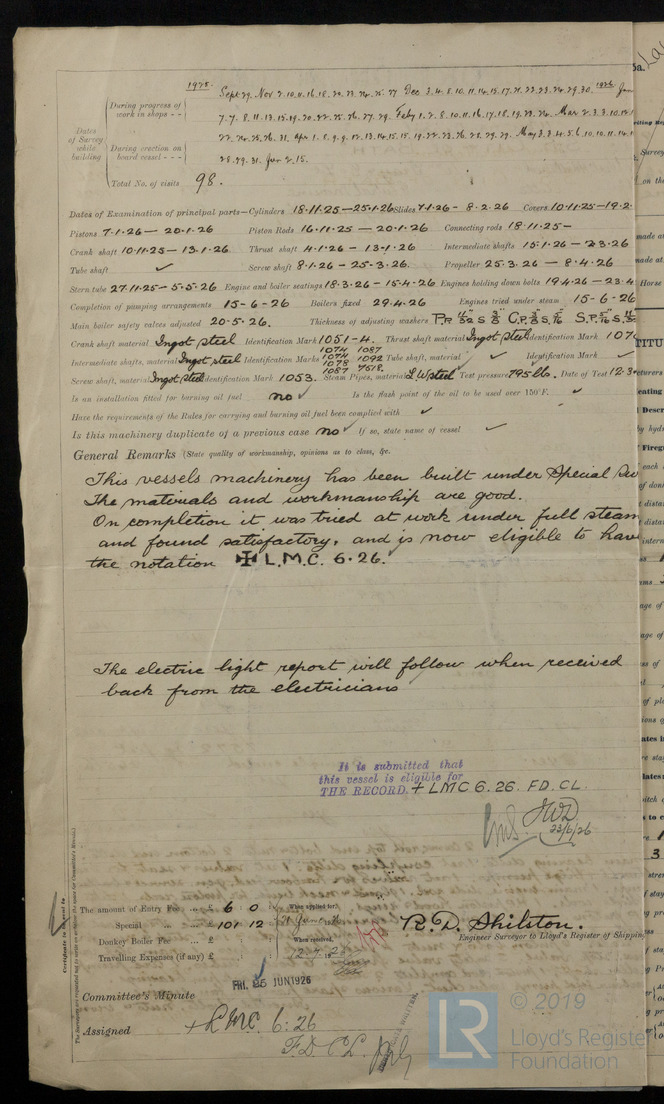 1925. Sept 29. Nov 2. 10. 11. 16. 18. 20. 23. 24. 25. 27 Dec 3. 4. 8. 10. 11. 14. 15. 17. 21. 22. 23. 24. 29. 30. 1926 Jan
During progress of work in shops - -
7. 7. 8. 11. 13. 15. 19. 20. 22. 25. 26. 27. 29. Feby 1. 2. 8. 10. 11. 16. 17. 18. 19. 23. 24. Mar 2. 3.
Dates of Survey while building
During erection on board vessel - - -
22. 24. 25. 26. 31. Apr 1. 8. 9. 9. 12. 13. 14. 15. 15. 19. 22. 23. 26. 28. 29. 29. May 3. 3. 4. 5. 6. 10. 10. 11. 14.
28. 29. 31. Jun 2. 15.
Total No. of visits 98.
Dates of Examination of principal parts—Cylinders 18.11.25—25.1.26 Slides 7.1.26 - 8.2.26 Covers 10.11.25—19.2
Pistons 7.1.26 — 20.1.26 Piston Rods 16.11.25 — 20.1.26 Connecting rods 18.11.25 —
Crank shaft 10.11.25 — 13.1.26 Thrust shaft 4.1.26 — 13.1.26 Intermediate shafts 15.1.26 — 23.26
Tube shaft ✓ Screw shaft 8.1.26 — 25.3.26. Propeller 25.3.26 — 8.4.26
Stern tube 27.11.25 — 5.5.26 Engine and boiler seatings 18.3.26 — 15.4.26 Engines holding down bolts 19.4.26 — 23.4
Completion of pumping arrangements 15-6-26 Boilers fixed 29.4.26 Engines tried under steam 15-6-26
Main boiler safety valves adjusted 20.5.26. Thickness of adjusting washers
Crank shaft material Ingot steel Identification Mark 1051-4. Thrust shaft material Ingot Steel Identification Mark 107
Intermediate shafts, material Ingot steel Identification Marks 1074 1087 1074 1078 1092 1087 7618. Tube shaft, material ✓ Identification Mark ✓
Screw shaft, material Ingot Steel Identification Mark 1053. Steam Pipes, material L W steel Test pressure 795 lbs. Date of Test 12.3
Is an installation fitted for burning oil fuel no ✓ Is the flash point of the oil to be used over 150°F. ✓
Have the requirements of the Rules for carrying and burning oil fuel been complied with ✓
Is this machinery duplicate of a previous case no ✓ If so, state name of vessel ✓
General Remarks (State quality of workmanship, opinions as to class, &c.
This vessels machinery has been built under Special Su
The materials and workmanship are good.
On completion it was tried at work under full steam
and found satisfactory, and is now eligible to have
the notation ✠ L.M.C. 6.26.
The electric light report will follow when received
back from the electricians
It is submitted that
this vessel is eligible for
THE RECORD. + LMC 6.26. FD. CL.
23/6/26
The amount of Entry Fee ... £ 6 : 0 : When applied for,
Special ... £ 101 : 12
Donkey Boiler Fee ... £ When received,
Travelling Expenses (if any) £ 12.7.26
R. D. Shilston.
Engineer Surveyor to Lloyd's Register of Shipping
FRI. 25 JUN 1926
Committee's Minute
Assigned + LMC. 6:26
FD CL.
© 2019
LR
Lloyd's Register
Foundation